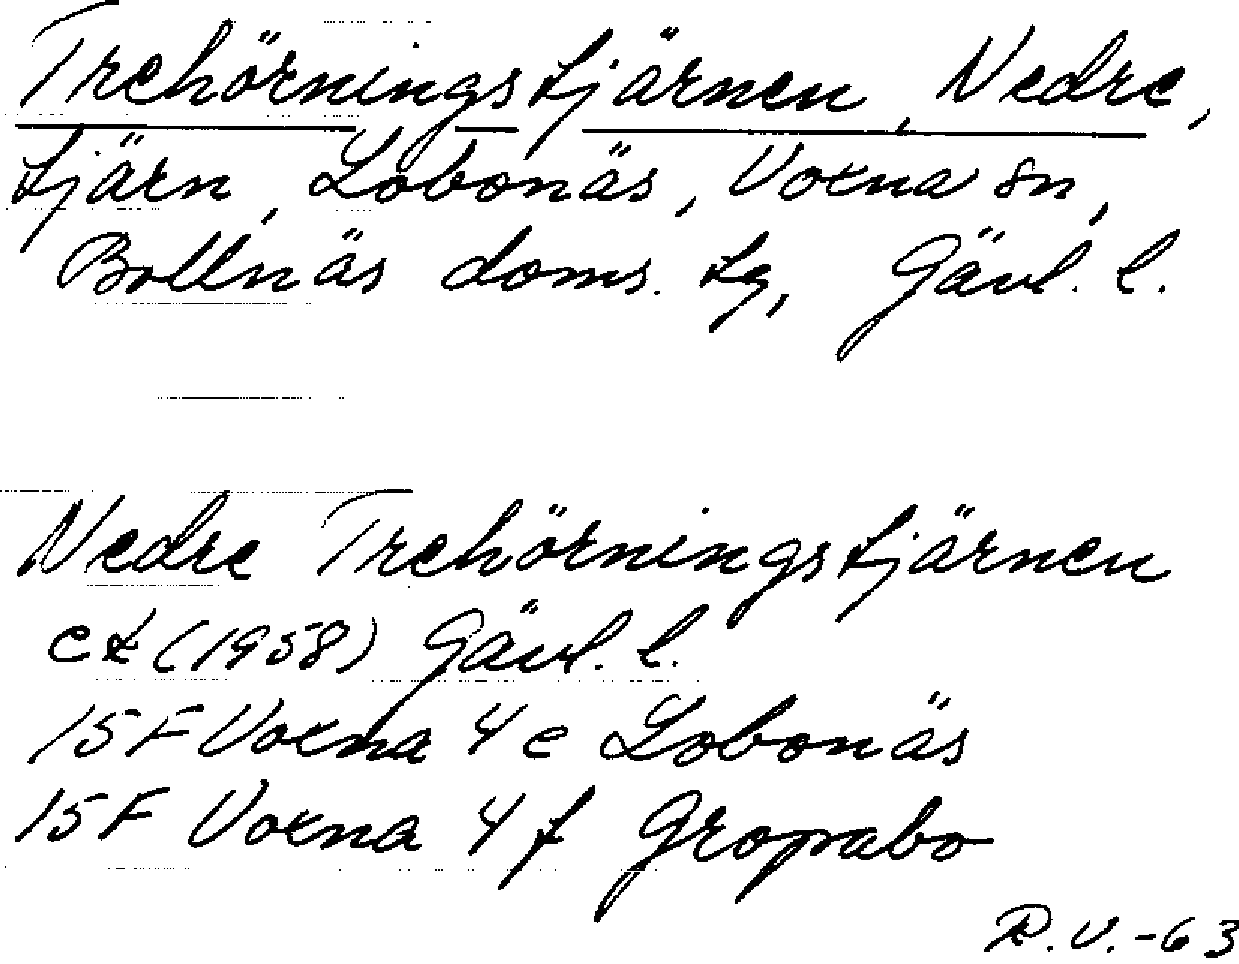 Trehörningstjärnen, Nedre,
tjärn, Lobonäs, Voxna sn,
Bollnäs doms. tg, Gävl. l.
Nedre Trehörningstjärnen
ek (1958) Gävl. l.
15F Voxna 4e Lobonäs
15F Voxna 4f Gropabo
R.V.-63